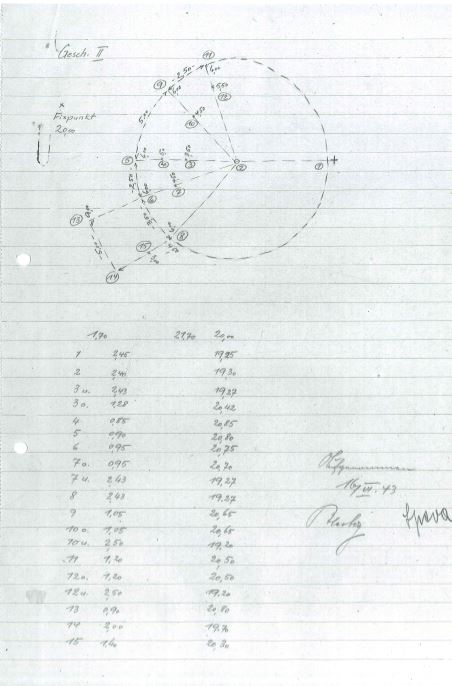 Gesch. II
x
Fixpunkt
20 m
11
2,50
9
5,00
4,50
12
10
5
4
3
2
1
+
2,50
6
7
13
8
15
14
1,70 21,70 20,00
1 2,45 19,25
2 2,40 19,30
3 u. 2,43 19,27
3 o. 1,28 20,42
4 0,85 20,85
5 0,90 20,80
6 0,95 20,75
7 o. 0,95 20,70
7 u. 2,43 19,27
8 2,43 19,27
9 1,05 20,65
10 o. 1,05 20,65
10 u. 2,50 19,20
11 1,20 20,50
12 o. 1,20 20,50
12 u. 2,50 19,20
13 0,90 20,80
14 2,00 19,70
15 1,40 20,30
Aufgenommen
16/VII. 43